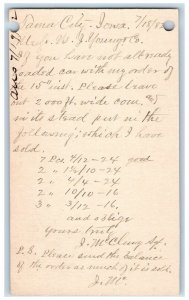 Dama City, Iowa, 7/18/82
W. J. Young & Co.
If you have not already
loaded car with my order of
the 15" inst. Please leave
out 2000 ft. wide com.
in its stead put in the
following; which I have
sold.
7 Pcs 4/12-24 good
2 " 1½/10-24
2 " 4/4-24
2 " 10/10-16
3 " 3/12-16,
and oblige
yours truly
J. McClung Agt.
P.S. Please send the balance
of the order as much of it is sold.
J. Mc